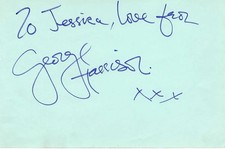 To Jessica, love from
George Harrison.
xxx